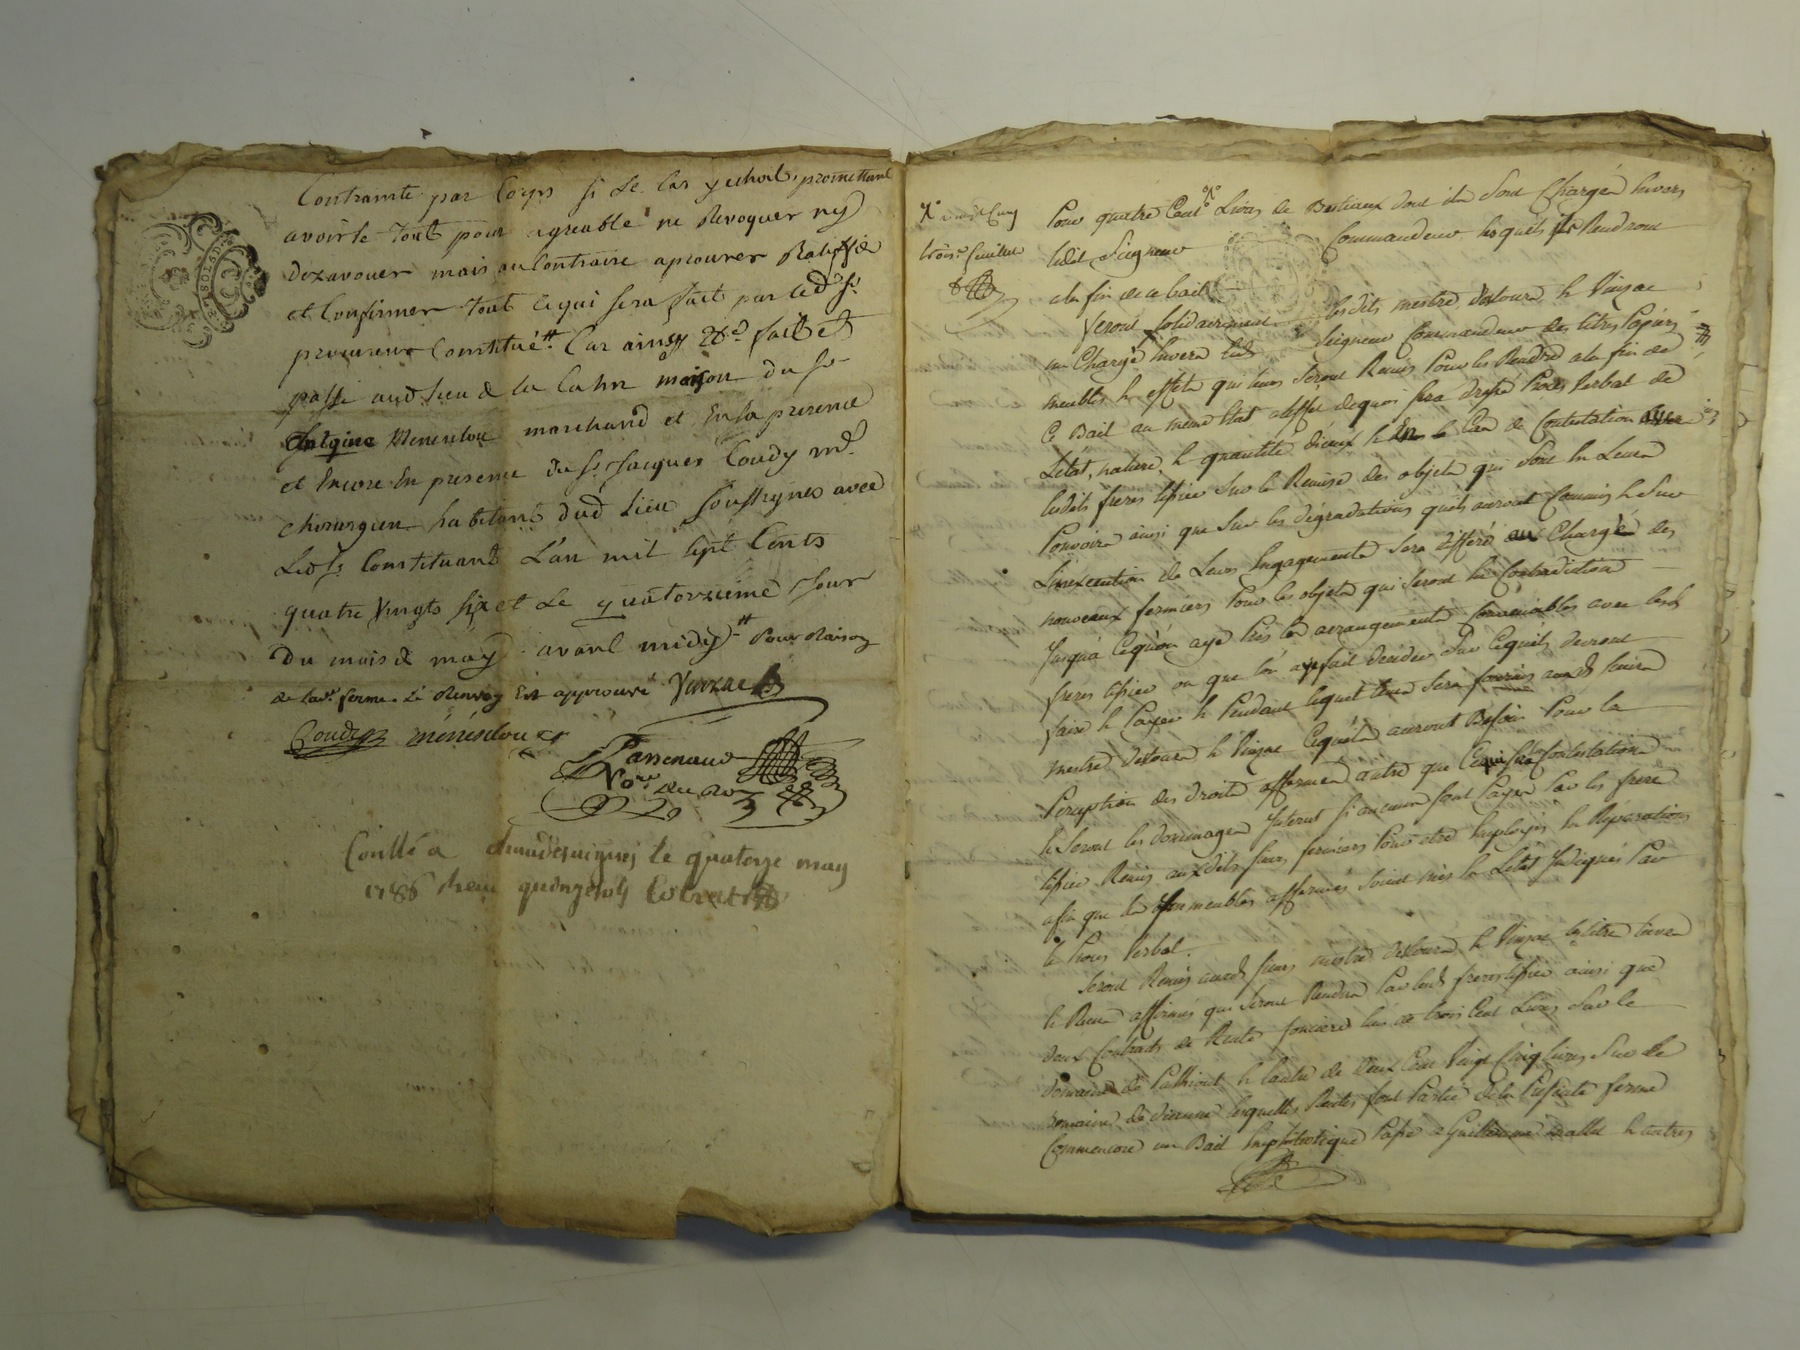 Contrainte par Corps si Le Cas y echoit, promettant
avoir le tout pour agreable ne Revoquer ny
dezavouer mais au Contraire aprouver Ratiffier
et Confirmer tout ce qui sera fait par led. sr.
procureur Constitué # Car ainsy &c. fait et
passé aud lieu de la maison du sr
Menesclou marchand et En la presence
et Encore En presence du Sr. Jacques Coudy md.
chirurgien habitant dud Lieu soussignes avec
Led. sr. Constituant L'an mil sept Cents
quatre Vingts six et Le quatorzieme Jour
Du mois de may avant midy # Pour Raison
de lad. ferme. Le Renvoy Est approuvé Vinzac
Coudy Ménésclou
Nore. du Roy
Conllé a le quatorze may
1786 Reçu quinze sols
Pour quatre Cent Livres de Bestiaux dont ils Sont Chargés Envers
troise. feuillet
ledit Seigneur Commandeur lesquels ils Rendront
a la fin de ce bail
Seront solidairement lesdits mestre Destours & Vinzac
un Chargé Envers led. Seigneur Commandeur des titres Papiers
meubles & effets qui leurs Seront Remis Pour les Rendre a la fin de
Ce Bail au meme Etat a l'effet de quoi sera dressé Procès Verbal de
L'état, nature, & quantité d'iceux & En Cas de Contestation
lesdits freres Sur la Remise des objets qui Sont En Leurs
Pouvoirs ainsi que Sur les dégradations quils auront Commis & Sur
L'inexecution de Leurs Engagements Sera differé au Chargé des
nouveaux fermiers Pour les objets qui Seront En Contradiction
Jusqu'a Cequ'on aye Pris des arrangements Convenables avec lesd.
freres ou que l'on aye fait décider Sur Cequils devront
faire & Payer & Pendant lequel tems Sera fourni auxd. Sieurs
mestre Destours & Vinzac Cequ'ils auront Besoin Pour la
Perception des droits affermés autre que Ceux En Contestation
& Seront les dommages Interets si aucuns sont Payés Par les freres
Remis auxdits Sieurs fermiers Pour etre Employés En Réparations
afin que les immeubles affermés Soient mis En L'état Indiqués Par
le Procès Verbal.
Seront Remis auxd. Sieurs mestre Destours & Vinzac les titres
& affermés qui Seront Rendus Par lesd. freres ainsi que
deux Contrats de Rente fonciere L'un de trois Cent Livres Sur le
domaine de & L'autre de deux Cent Vingt Cinq Livres Sur le
domaine de lesquelles Rentes font Partie de la Presente ferme
Comme encore un Bail Emphiteotique Passé a Guillaume & autres